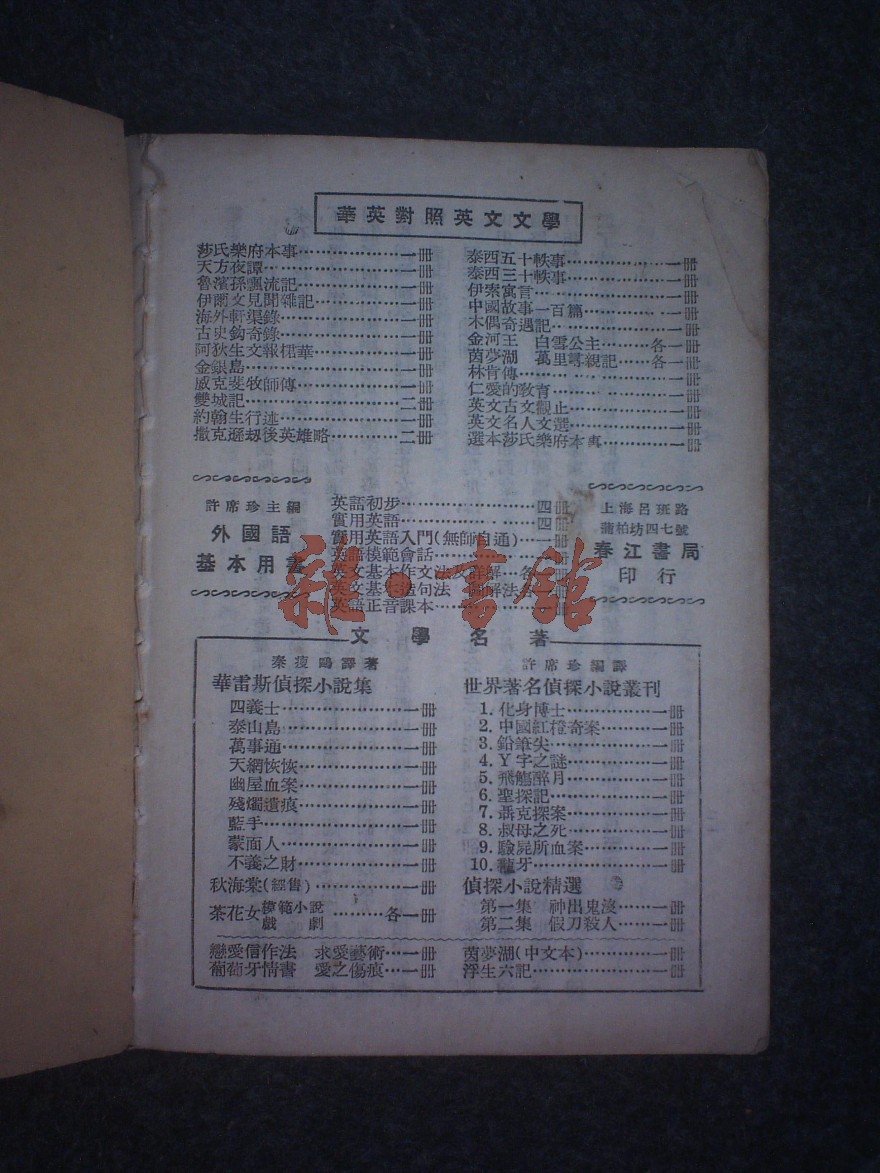 華英對照英文文學
莎氏樂府本事…一冊
天方夜譚…一冊
魯濱孫飄流記…一冊
伊爾文見聞雜記…一冊
海外軒渠錄…一冊
古史鈎奇錄…一冊
阿狄生文報捃華…一冊
金銀島…一冊
威克斐牧師傳…一冊
雙城記…二冊
約翰生行述…一冊
撒克遜刼後英雄略…二冊
泰西五十軼事…一冊
泰西三十軼事…一冊
伊索寓言…一冊
中國故事一百篇…一冊
木偶奇遇記…一冊
金河王 白雪公主…各一冊
茵夢湖 萬里尋親記…各一冊
林肯傳…一冊
仁愛的敎育…一冊
英文古文觀止…一冊
英文名人文選…一冊
選本莎氏樂府本事…一冊
許席珍主編
外國語
基本用書
英語初步…四冊
實用英語…四冊
實用英語入門(無師自通)…一冊
英語模範會話…一冊
英文基本作文法及詳解…各
英文基本造句法 圖解法
英語正音課本…一冊
上海呂班路
蒲柏坊四七號
春江書局
印行
雜·書館
文學名著
秦瘦鷗譯著
華雷斯偵探小說集
四義士…一冊
泰山島…一冊
萬事通…一冊
天網恢恢…一冊
幽屋血案…一冊
殘燭遺痕…一冊
藍手…一冊
蒙面人…一冊
不義之財…一冊
秋海棠(經售)…一冊
茶花女 模範小說 戲劇…各一冊
許席珍編譯
世界著名偵探小說叢刊
1. 化身博士…一冊
2. 中國紅橙奇案…一冊
3. 鉛筆尖…一冊
4. Y字之謎…一冊
5. 飛觴醉月…一冊
6. 聖探記…一冊
7. 聶克探案…一冊
8. 叔母之死…一冊
9. 驗屍所血案…一冊
10. 龍牙…一冊
偵探小說精選
第一集 神出鬼沒…一冊
第二集 假刀殺人…一冊
戀愛信作法 求愛藝術…一冊
葡萄牙情書 愛之傷痕…一冊
茵夢湖(中文本)…一冊
浮生六記…一冊